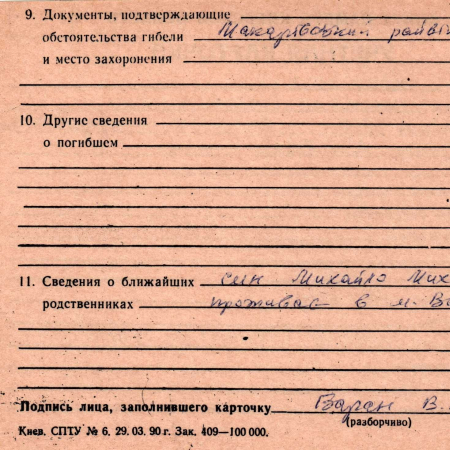 9. Документы, подтверждающие
обстоятельства гибели Макарівський
и место захоронения
10. Другие сведения
о погибшем
11. Сведения о ближайших син Михайло
родственниках проживає в м.
Подпись лица, заполнившего карточку Варен В.
(разборчиво)
Киев. СПТУ № 6. 29. 03. 90 г. Зак. 409—100 000.